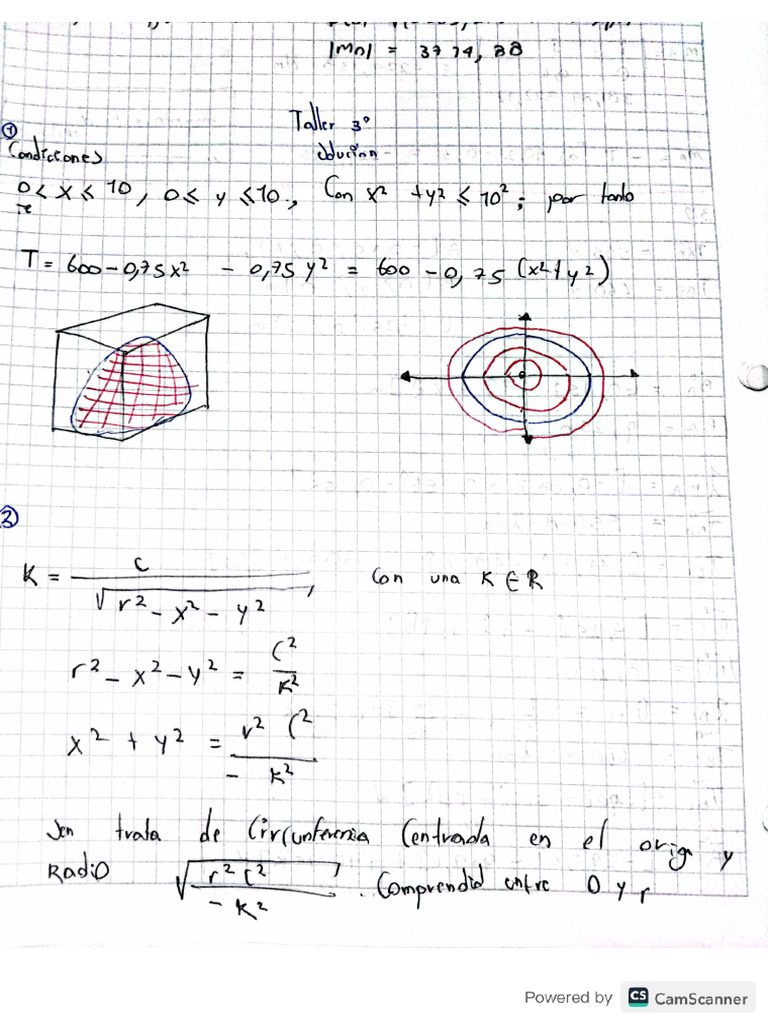 |Mn| = 3774,88
Taller 3°
Solución
①
Condiciones
0 < x ≤ 10, 0 ≤ y ≤ 10, Con x² + y² ≤ 10²; por tanto
T = 600 - 0,75x² - 0,75y² = 600 - 0,75 (x² + y²)
②
K = c / √r² - x² - y², Con una K ∈ R
r² - x² - y² = C² / K²
x² + y² = r² C² / - K²
Sen trata de Circunferencia Centrada en el orign y
Radio √r² C² / - K². Comprendid entre 0 y r
Powered by CS CamScanner